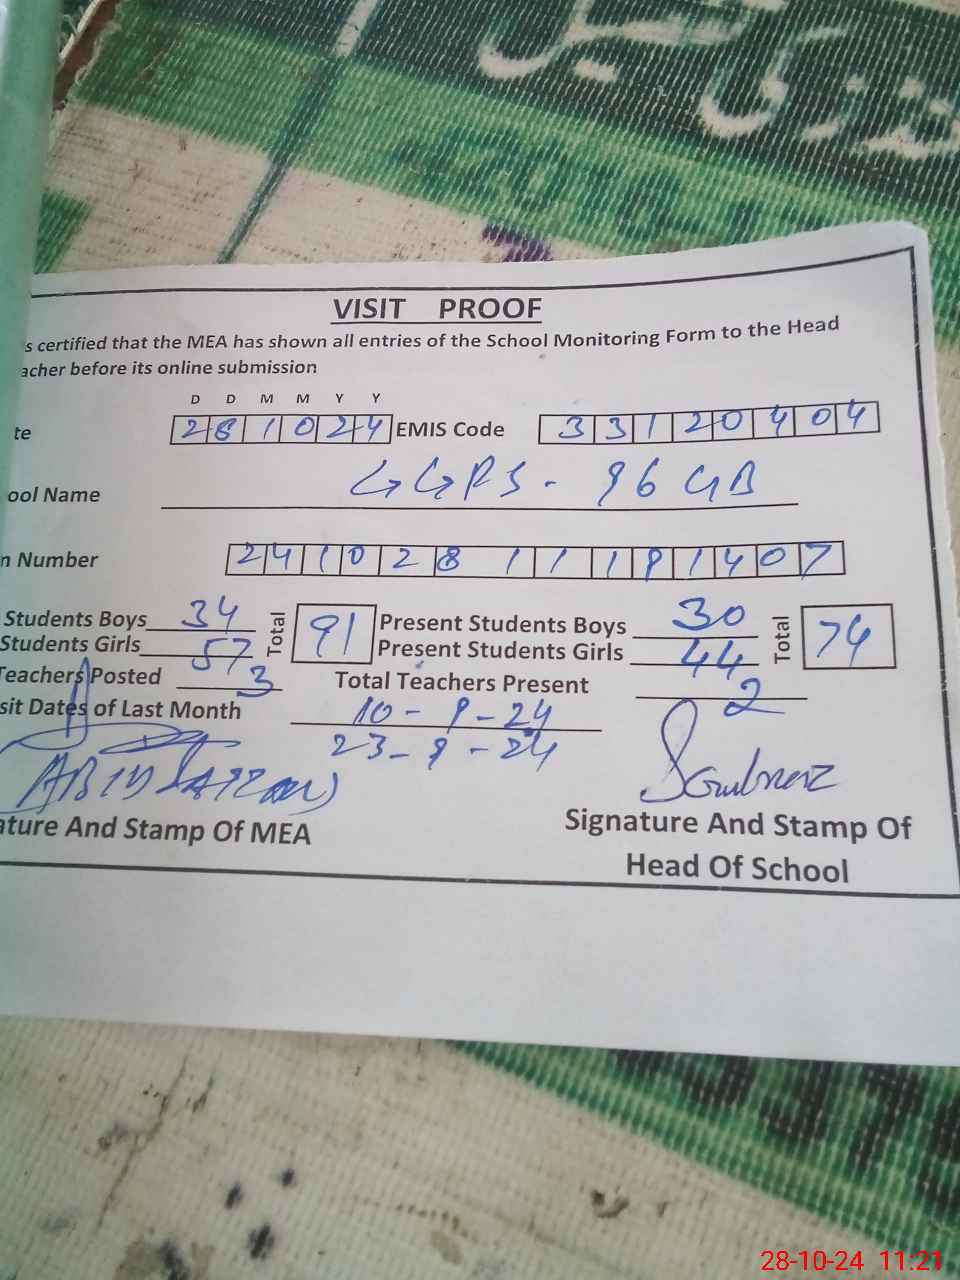 کی تفصیل
VISIT PROOF
s certified that the MEA has shown all entries of the School Monitoring Form to the Head
acher before its online submission
D D M M Y Y
te 281024 EMIS Code 33120404
ool Name GGPS - 96 GB
n Number 241028111 1407
Students Boys 34 Total 91 Present Students Boys 30 Total 74
Students Girls 57 Present Students Girls 44
Teachers Posted 3 Total Teachers Present 2
sit Dates of Last Month 10-9-24
23-9-24
ature And Stamp Of MEA Signature And Stamp Of
Head Of School
28-10-24 11:21